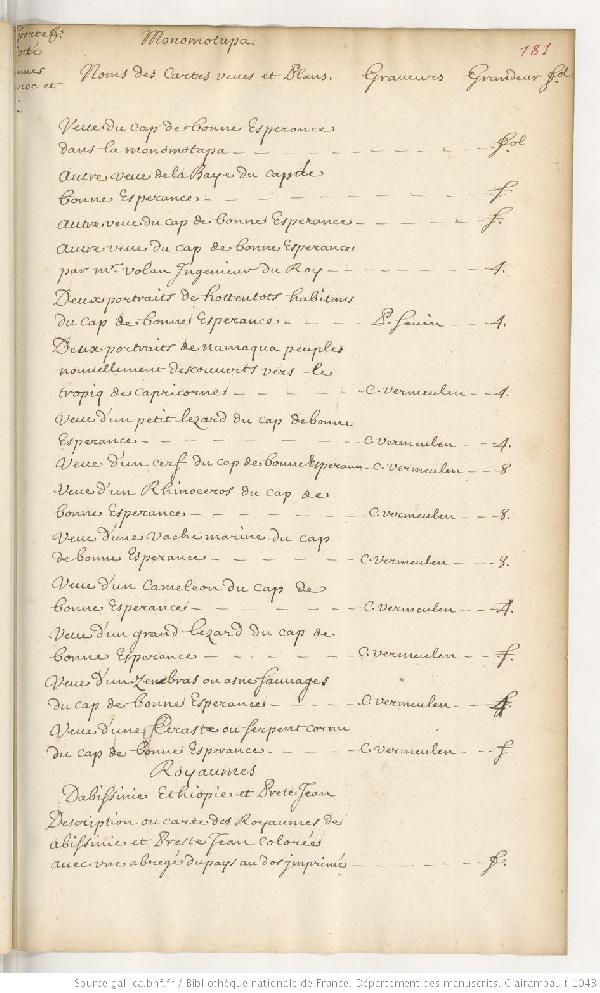 Monomotupa.
181
Noms des Cartes veues et Plans. Graveurs Grandeur fol
Veue du cap de bonne Esperance
dans la monomotapa fol
Autre veue de la Baye du cap de
bonne Esperance f.
Autre veue du cap de bonne Esperance f.
Autre veue du cap de bonne Esperance
par mr. volan Ingenieur du Roy 4.
Deux portraits de hottentots habitans
du cap de bonne Esperance 4.
Deux portraits de namaqua peuples
nouvellement descouverts vers le
tropiq de capricorne C. vermeulen 4.
Veue d'un petit lezard du cap de bonne
Esperance C. vermeulen 4.
Veue d'un cerf du cap de bonne Esperance C. vermeulen 8
Veue d'un Rhinoceros du cap de
bonne Esperance C. vermeulen 8.
Veue d'une vache marine du cap
de bonne Esperance C. vermeulen 8.
Veue d'un Cameleon du cap de
bonne Esperance C. vermeulen 4.
Veue d'un grand lezard du cap de
bonne Esperance C. vermeulen f.
Veue d'un zembras ou asne sauvages
du cap de bonne Esperance C. vermeulen f.
Veue d'une Ceraste ou serpent cornu
du cap de bonne Esperance C. vermeulen f
Royaumes
Dabissinie Ethiopie et Prete Jean
Description ou carte des Royaumes de
abissinie et Preste Jean colorée
avec vne abregé du pays au dos jmprimé f.
Source gallica.bnf.fr / Bibliothèque nationale de France. Département des manuscrits. Clairambault 1043